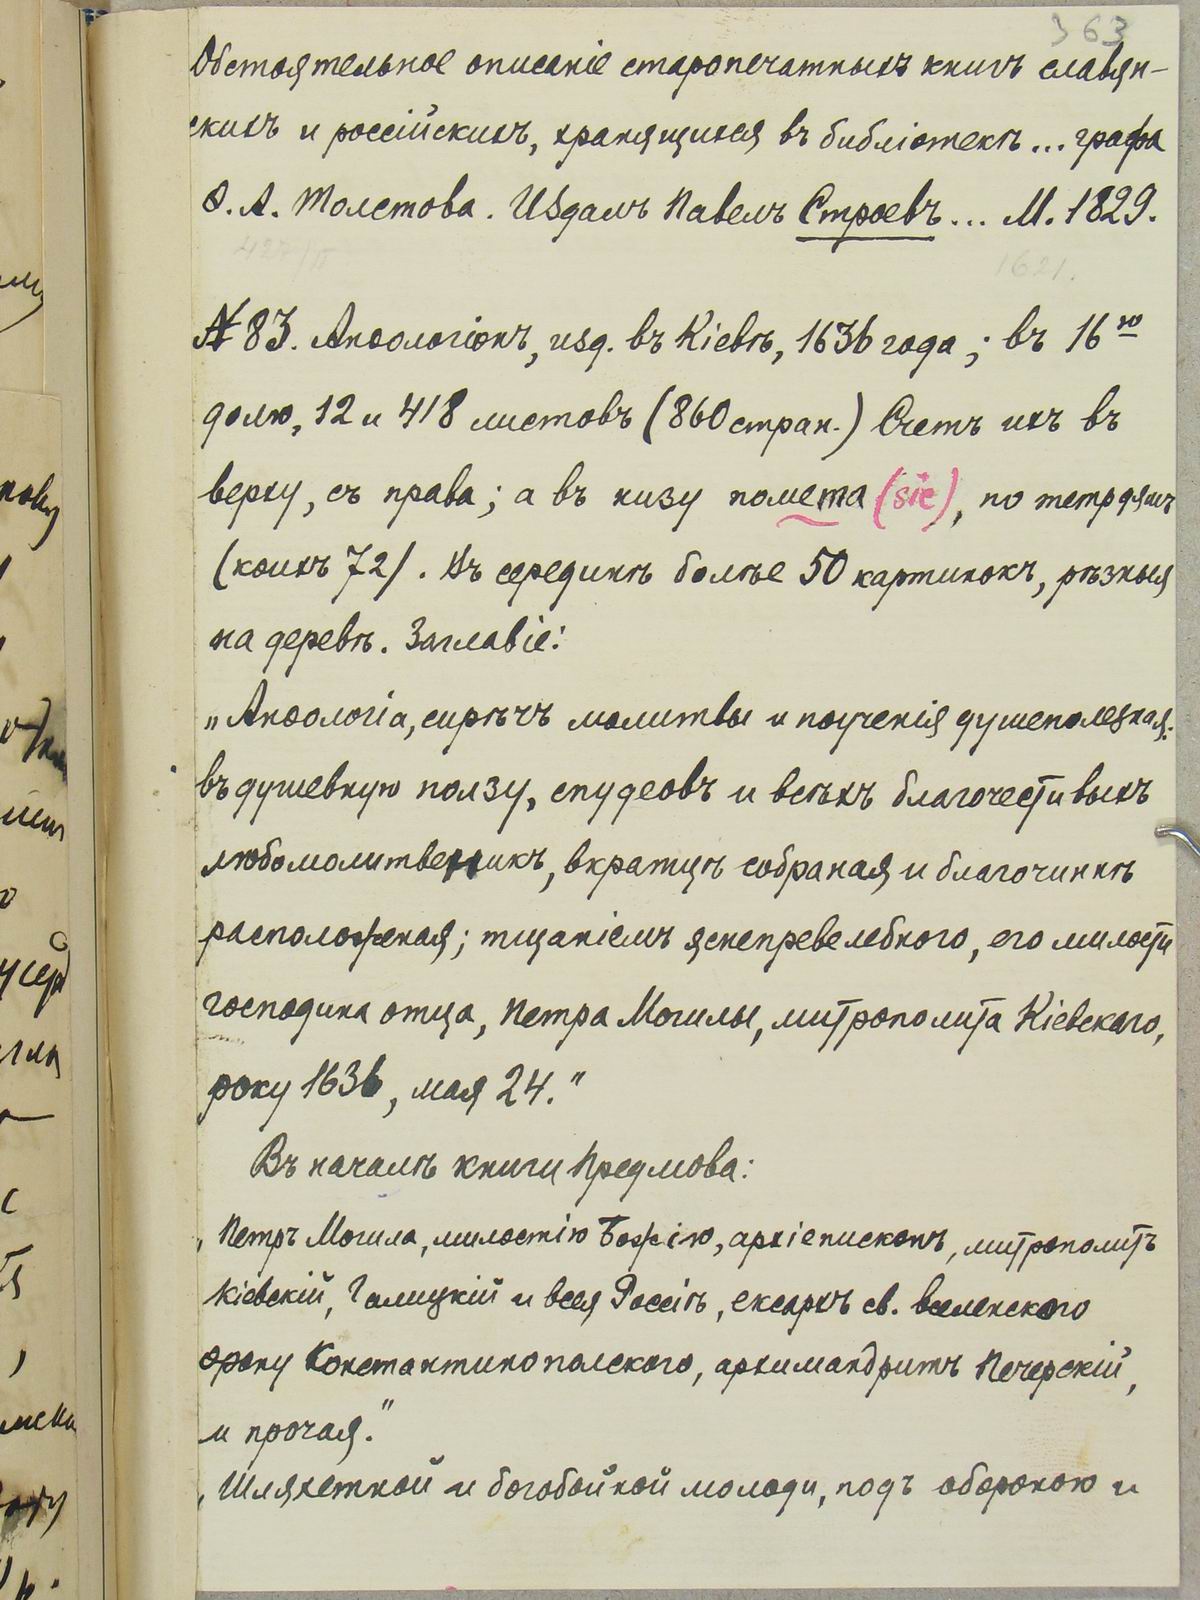 363
Обстоятельное описаніе старопечатныхъ книгъ славян-
скихъ и россійскихъ, хранящихся въ библіотекѣ... графа
Ѳ. А. Толстова. Издалъ Павелъ Строевъ... М. 1829.
427/II
1621.
№ 83. Анѳологіонъ, изд. въ Кіевѣ, 1636 года; въ 16ю
долю, 12 и 418 листовъ (860 стран.) Счетъ ихъ въ
верху, съ права; а въ низу помета (sic), по тетрдямъ
(коихъ 72). Въ серединѣ болѣе 50 картинокъ, рѣзныя
на деревѣ. Заглавіе:
„Анѳологіа, сирѣчъ молитвы и поученія душеполезная:
въ душевную ползу, спудеовъ и всѣхъ благочестивыхъ
любомолитвенникъ, вкратцѣ собраная и благочиннѣ
расположеная; тщаніемъ яснепревелебного, его милости
господина отца, Петра Могилы, митрополита Кіевского,
року 1636, мая 24."
Въ началѣ книги Предмова:
„Петръ Могила, милостію Божією, архіепископъ, митрополитъ
Кіевскій, Галицкій и всея Россіѣ, ексархъ св. вселенского
ѳрону Константинополского, архимандритъ Печерскій,
и прочая."
„Шляхетной и богобойной молоди, подъ обороною и